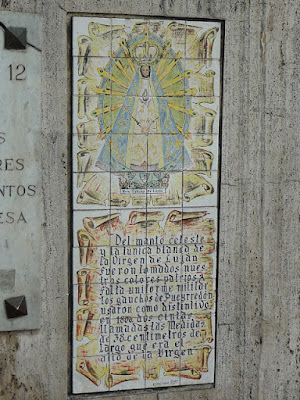 12
S
RES
NTOS
ESA
Del manto celeste
y la tunica blanca de
la Virgen de Luján
fueron tomados nues
tros colores patrios a
falta uniforme militar
los gauchos de Pueyrredón
usaron como distintivo
en 1806 dos cintas
llamadas las Medidas
de 38 centimetros de
largo que era el
alto de la Virgen